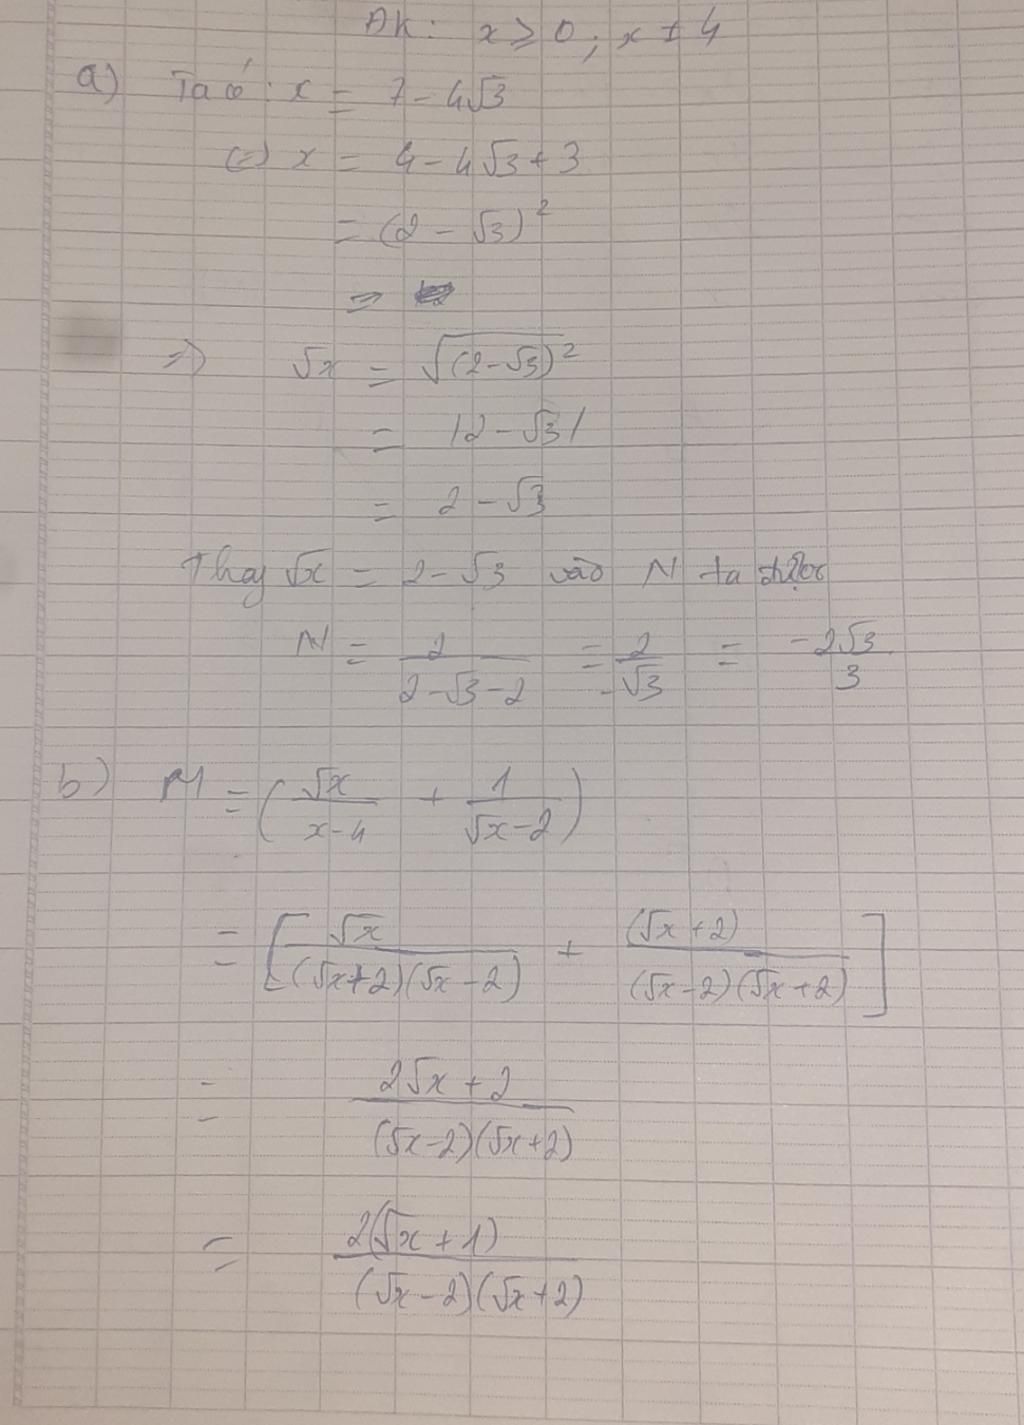 ĐK: x ≥ 0 ; x ≠ 4
a) Ta có : x = 7 - 4√3
(=) x = 4 - 4√3 + 3
= (2 - √3)²
=
=> √x = √((2-√3)²)
= |2 - √3|
= 2 - √3
Thay √x = 2 - √3 vào N ta được
N = 2/(2-√3-2) = 2/(-√3) = (-2√3)/3
b) M = (√x/(x-4) + 1/(√x-2))
= [√x/((√x+2)(√x-2)) + (√x+2)/((√x-2)(√x+2))]
= (2√x+2)/((√x-2)(√x+2))
= 2(√x+1)/((√x-2)(√x+2))